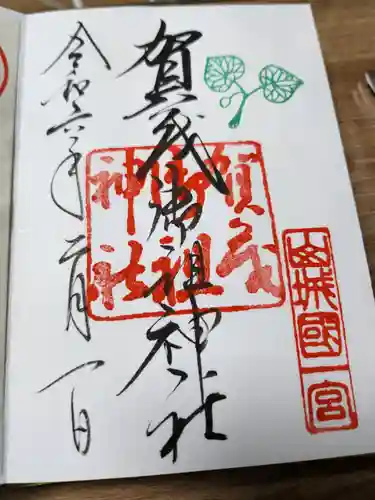 山城國一宮
賀茂御祖神社
賀茂御祖神社
令和六年二月一日